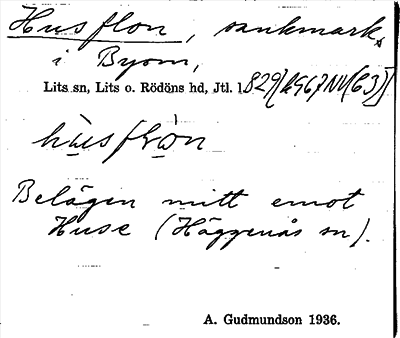 Husflon, sankmark,
i Byom,
Lits sn, Lits o. Rödöns hd, Jtl.
hùsflòn
Belägen mitt emot
Huse (Häggenås sn).
A. Gudmundson 1936.